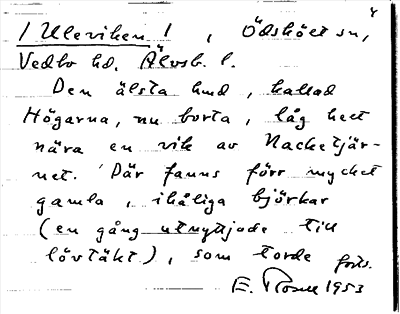 / Uleviken / , Ödskölt sn,
Vedbo hd. Älvsb. l.
Den älsta lund, kallad
Högarna, nu borta, låg helt
nära en vik av Nacketjär-
net. Där fanns förr mycket
gamla, ihåliga björkar
(en gång utnyttjade till
lövtäkt), som torde forts.
E. 1953